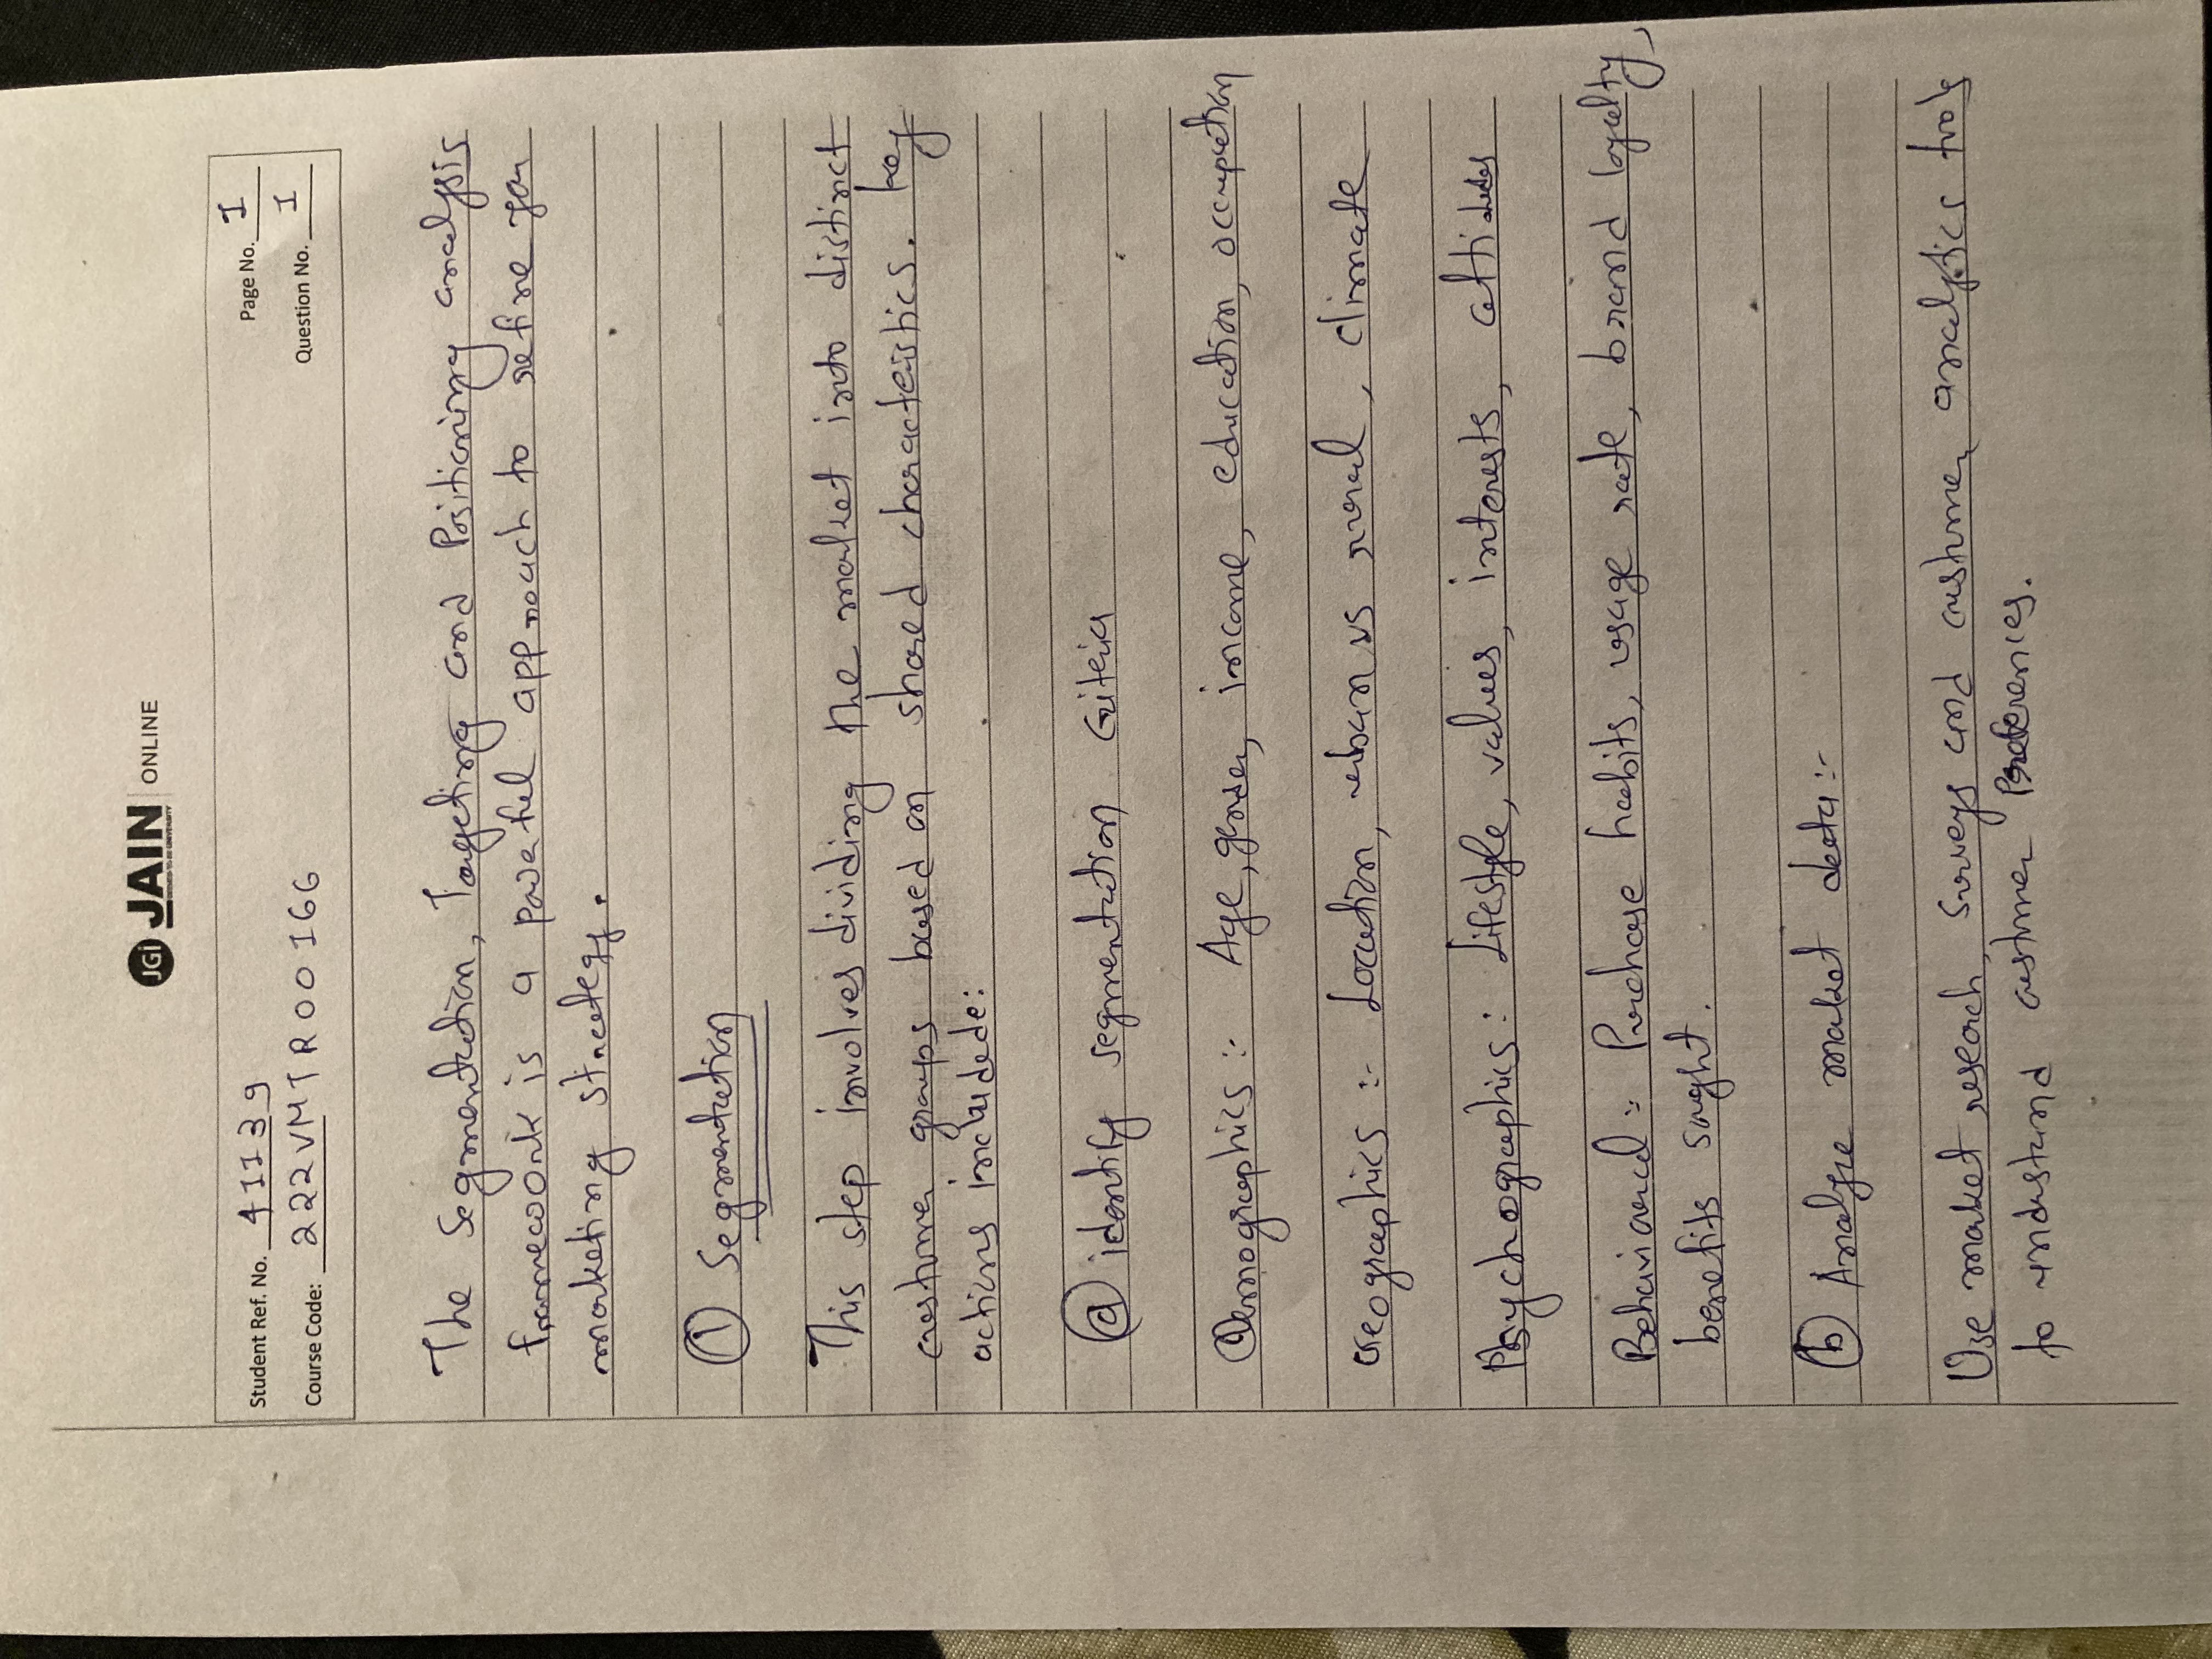 JGi JAIN ONLINE
DEEMED-TO-BE UNIVERSITY
Student Ref. No. 41139
Page No. 1
Course Code: 222VMTR00166
Question No. 1
The Segmentation, Targeting and Positioning analysis
framework is a powerful approach to refine your
marketing strategy.
① Segmentation
This step involves dividing the market into distinct
customer groups based on shared characteristics. Key
actions includede:
ⓐ identify segmentation criteria
Demographics :- Age, gender, income, education, occupation
Geographics :- Location, urban vs rural, climate
Psychographics: Lifestyle, values, interests, attitudes
Behavioural :- Purchase habits, usage rate, brand loyalty,
benefits sought.
ⓑ Analyze market data :-
Use market research, surveys and customer analytics tools
to understand customer Preferences.